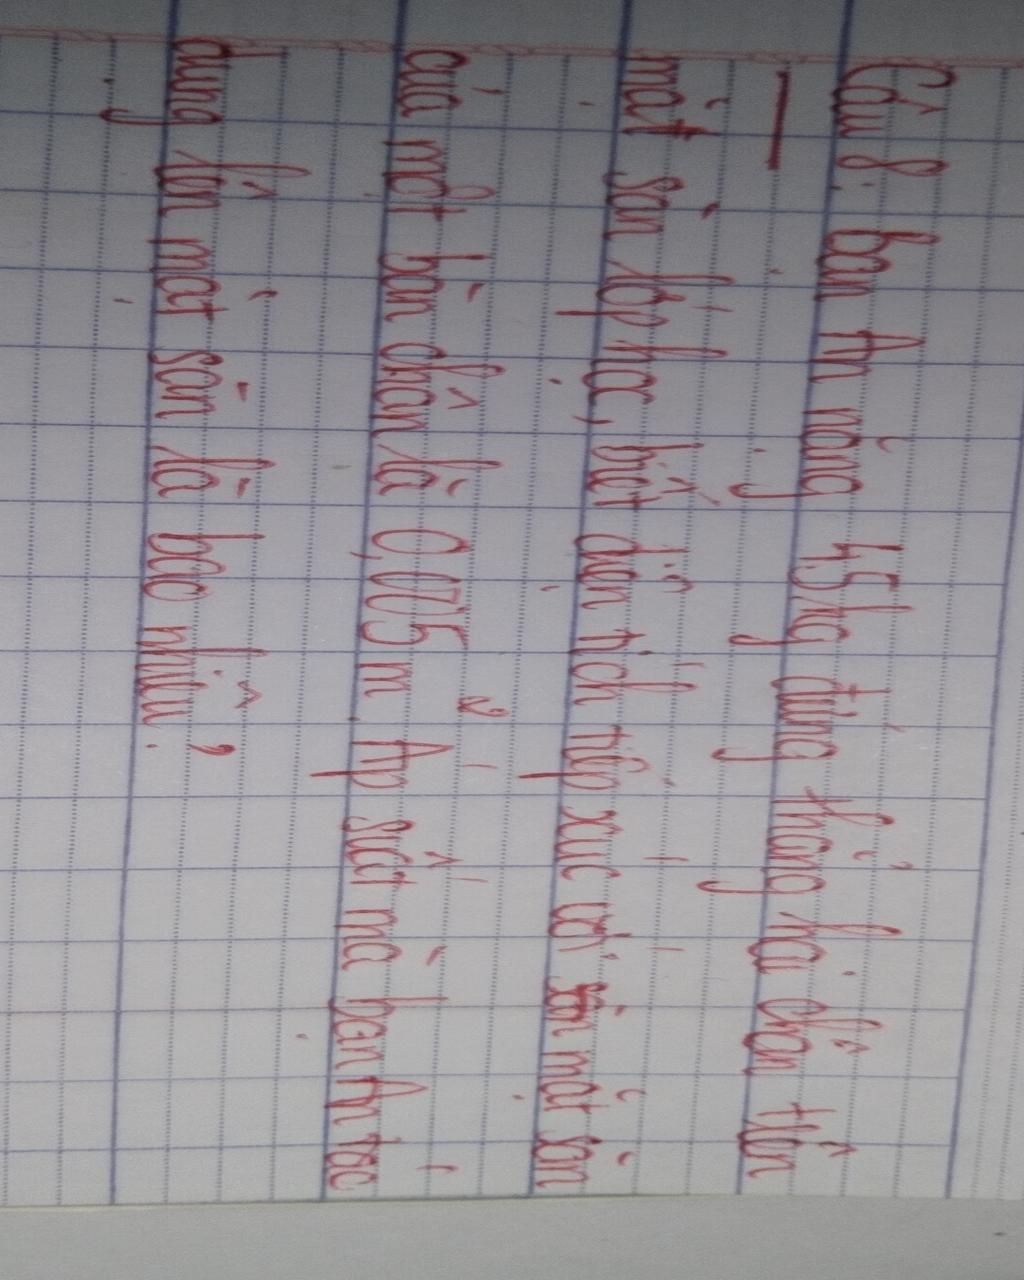 Câu 8: bạn An nặng 45kg đứng thẳng hai chân trên
mặt sàn lớp học, biết diện tích tiếp xúc với sàn mặt sàn
của một bàn chân là 0,005 m². Áp suất mà bạn An tác
dụng lên mặt sàn là bao nhiêu?